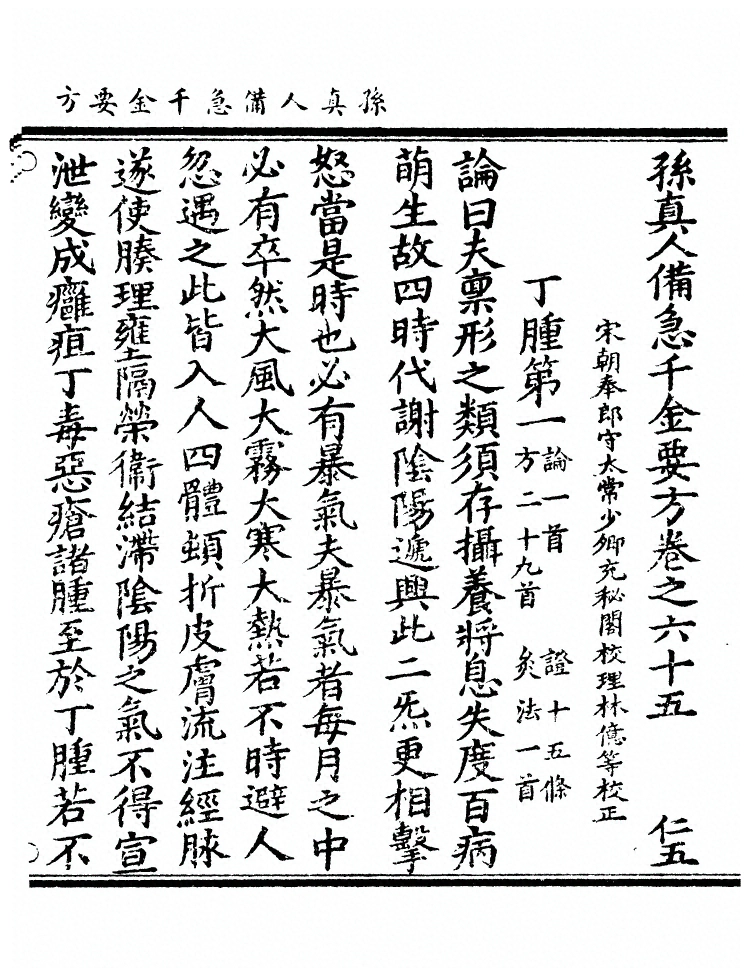 孫真人備急千金要方
孫真人備急千金要方卷之六十五 仁五
宋朝奉郎守太常少卿充秘閣校理林億等校正
丁腫第一 論一首 證十五條 方二十九首 灸法一首
論曰夫稟形之類須存攝養將息失度百病
萌生故四時代謝陰陽遞興此二炁更相擊
怒當是時也必有暴氣夫暴氣者每月之中
必有卒然大風大霧大寒大熱若不時避人
忽遇之此皆入人四體頓折皮膚流注經脉
遂使腠理壅隔榮衞結滯陰陽之氣不得宣
泄變成癰疽丁毒惡瘡諸腫至於丁腫若不